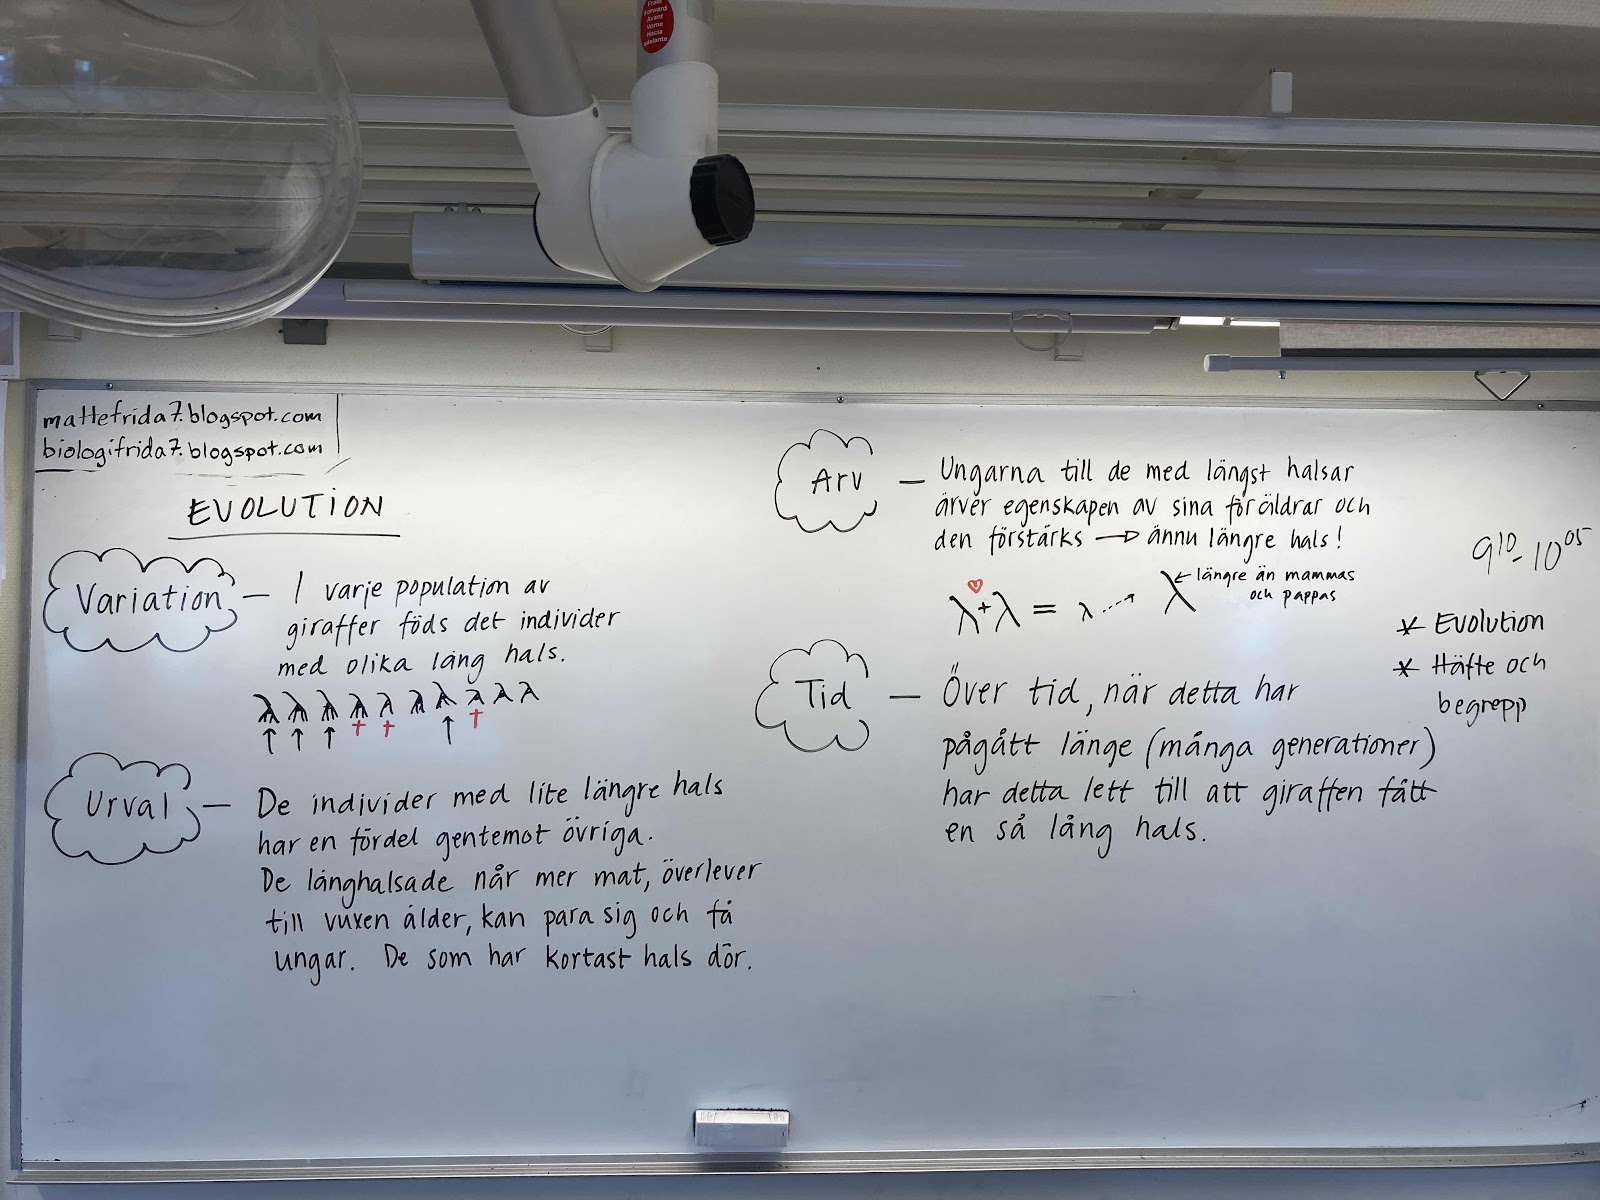 From
Forward
Avant
Vorne
Hacia
adelante
mattefrida7.blogspot.com
biologifrida7.blogspot.com
EVOLUTION
Variation – I varje population av
giraffer föds det individer
med olika lång hals.
Urval – De individer med lite längre hals
har en fördel gentemot övriga.
De långhalsade når mer mat, överlever
till vuxen ålder, kan para sig och få
ungar. De som har kortast hals dör.
Arv – Ungarna till de med längst halsar
ärver egenskapen av sina föräldrar och
den förstärks → ännu längre hals!
+ =
← längre än mammas
och pappas
Tid – Över tid, när detta har
pågått länge (många generationer)
har detta lett till att giraffen fått
en så lång hals.
9¹⁰-10⁰⁵
* Evolution
* Häfte och
begrepp